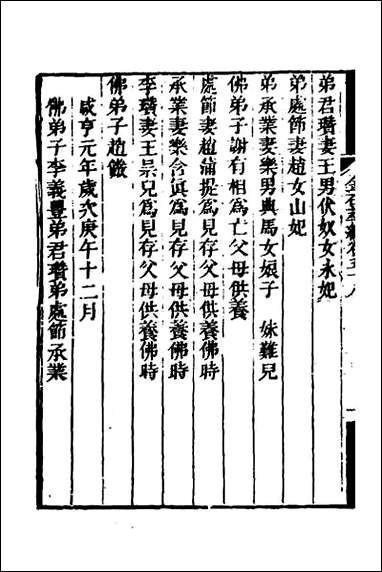 金石萃編卷五十八
弟君瓚妻王男伏奴女永妃
弟處節妻趙女山妃
弟承業妻樂男典馬女娘子　妹難兒
佛弟子謝有相爲亡父母供養
處節妻趙蒲提爲見存父母供養佛時
承業妻樂含眞爲見存父母供養佛時
李瓚妻王杲兒爲見存父母供養佛時
佛弟子趙儼
咸亨元年歲次庚午十二月
佛弟子李義豐弟君瓚弟處節承業